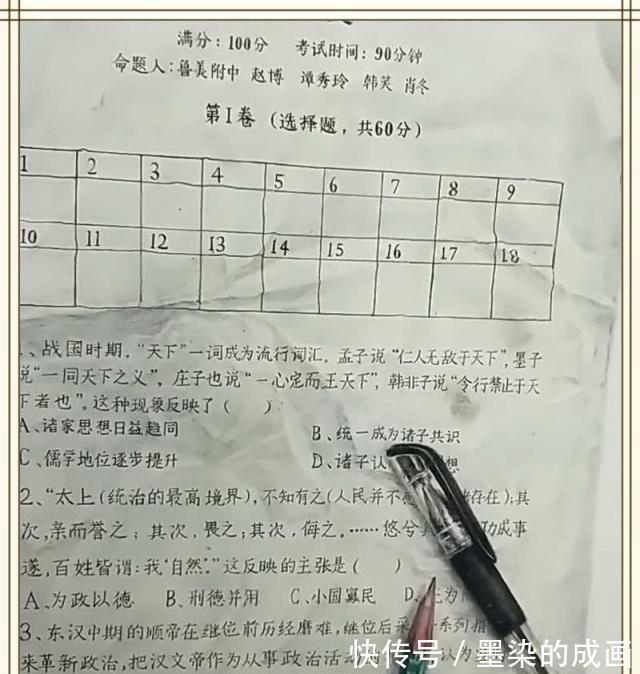 满分：100分 考试时间：90分钟
命题人：鲁美附中 赵博 谭秀玲 韩笑 肖冬
第I卷（选择题，共60分）
1 2 3 4 5 6 7 8 9
10 11 12 13 14 15 16 17 18
、战国时期，“天下”一词成为流行词汇。孟子说“仁人无敌于天下”，墨子
说“一同天下之义”，庄子也说“一心定而王天下”，韩非子说“令行禁止于天
下者也”。这种现象反映了（ ）
A、诸家思想日益趋同 B、统一成为诸子共识
C、儒学地位逐步提升 D、诸子认 想
2、“太上（统治的最高境界），不知有之（人民并不 存在）；其
次，亲而誉之；其次，畏之；其次，侮之。……悠兮 功成事
遂，百姓皆谓：我‘自然’。”这反映的主张是（ ）
A、为政以德 B、刑德并用 C、小国寡民 D、 为
3、东汉中期的顺帝在继位前历经磨难，继位后采 系列
来革新政治，把汉文帝作为从事政治活动 认为
快传号／墨染的成画